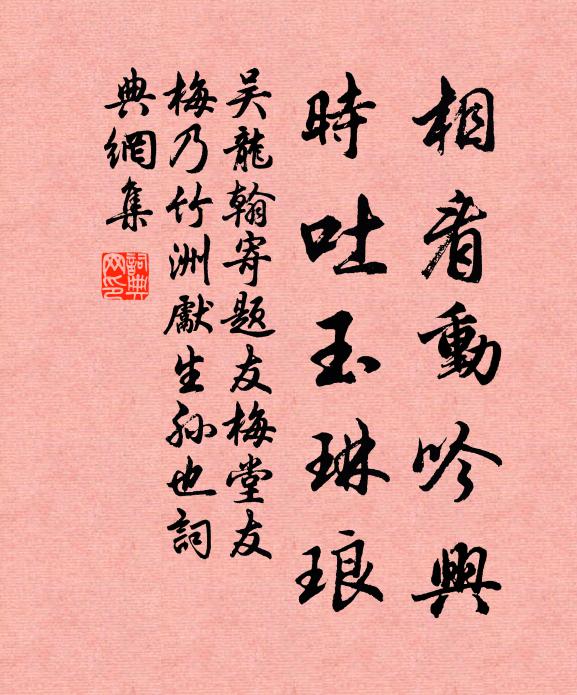 相看動吟興
時吐玉琳琅
吴龍翰寄題友梅堂友
梅乃竹洲獻生孙也詞
典網集
詞典
网印